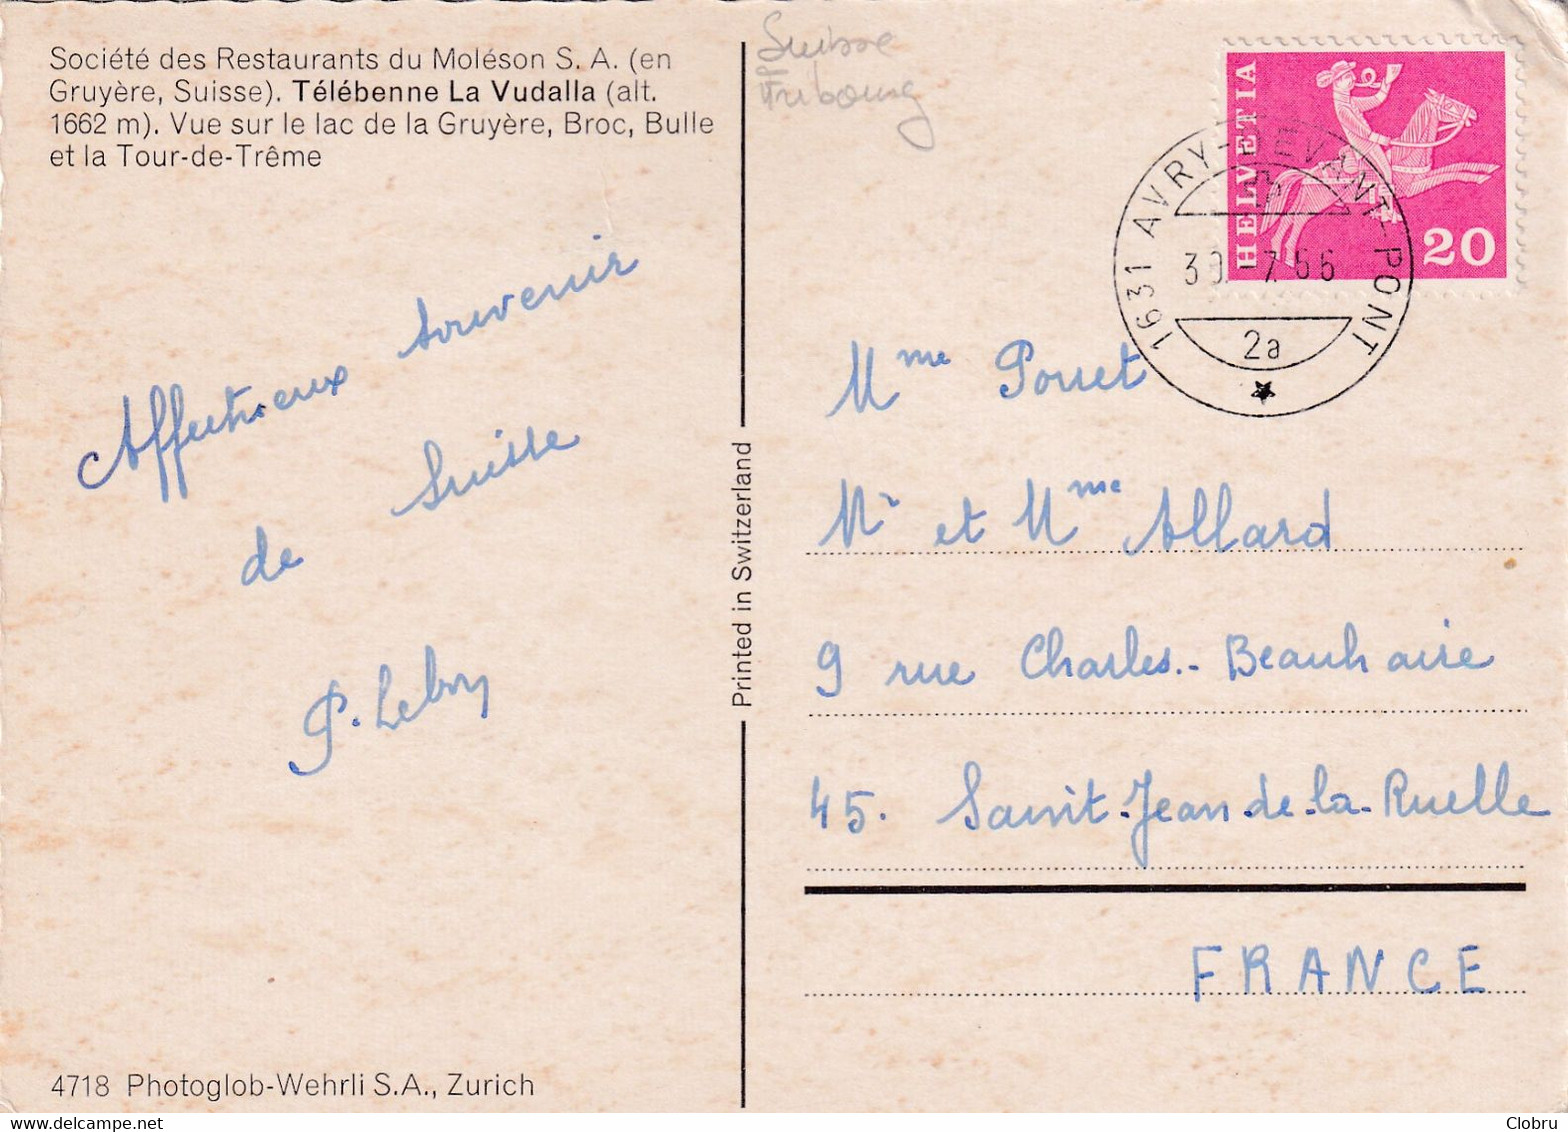 Société des Restaurants du Moléson S. A. (en
Gruyère, Suisse). Télébenne La Vudalla (alt.
1662 m). Vue sur le lac de la Gruyère, Broc, Bulle
et la Tour-de-Trême
Suisse
Fribourg
HELVETIA
20
1631 AVRY-DEVANT-PONT
30.-7.66
2a
Affectueux souvenir
de Suisse
P. Leboy
Printed in Switzerland
Mme Pouet
Mr et Mme Allard
9 rue Charles.-Beauhaire
45. Saint-Jean-de-la-Ruelle
FRANCE
4718 Photoglob-Wehrli S.A., Zurich
Clobru